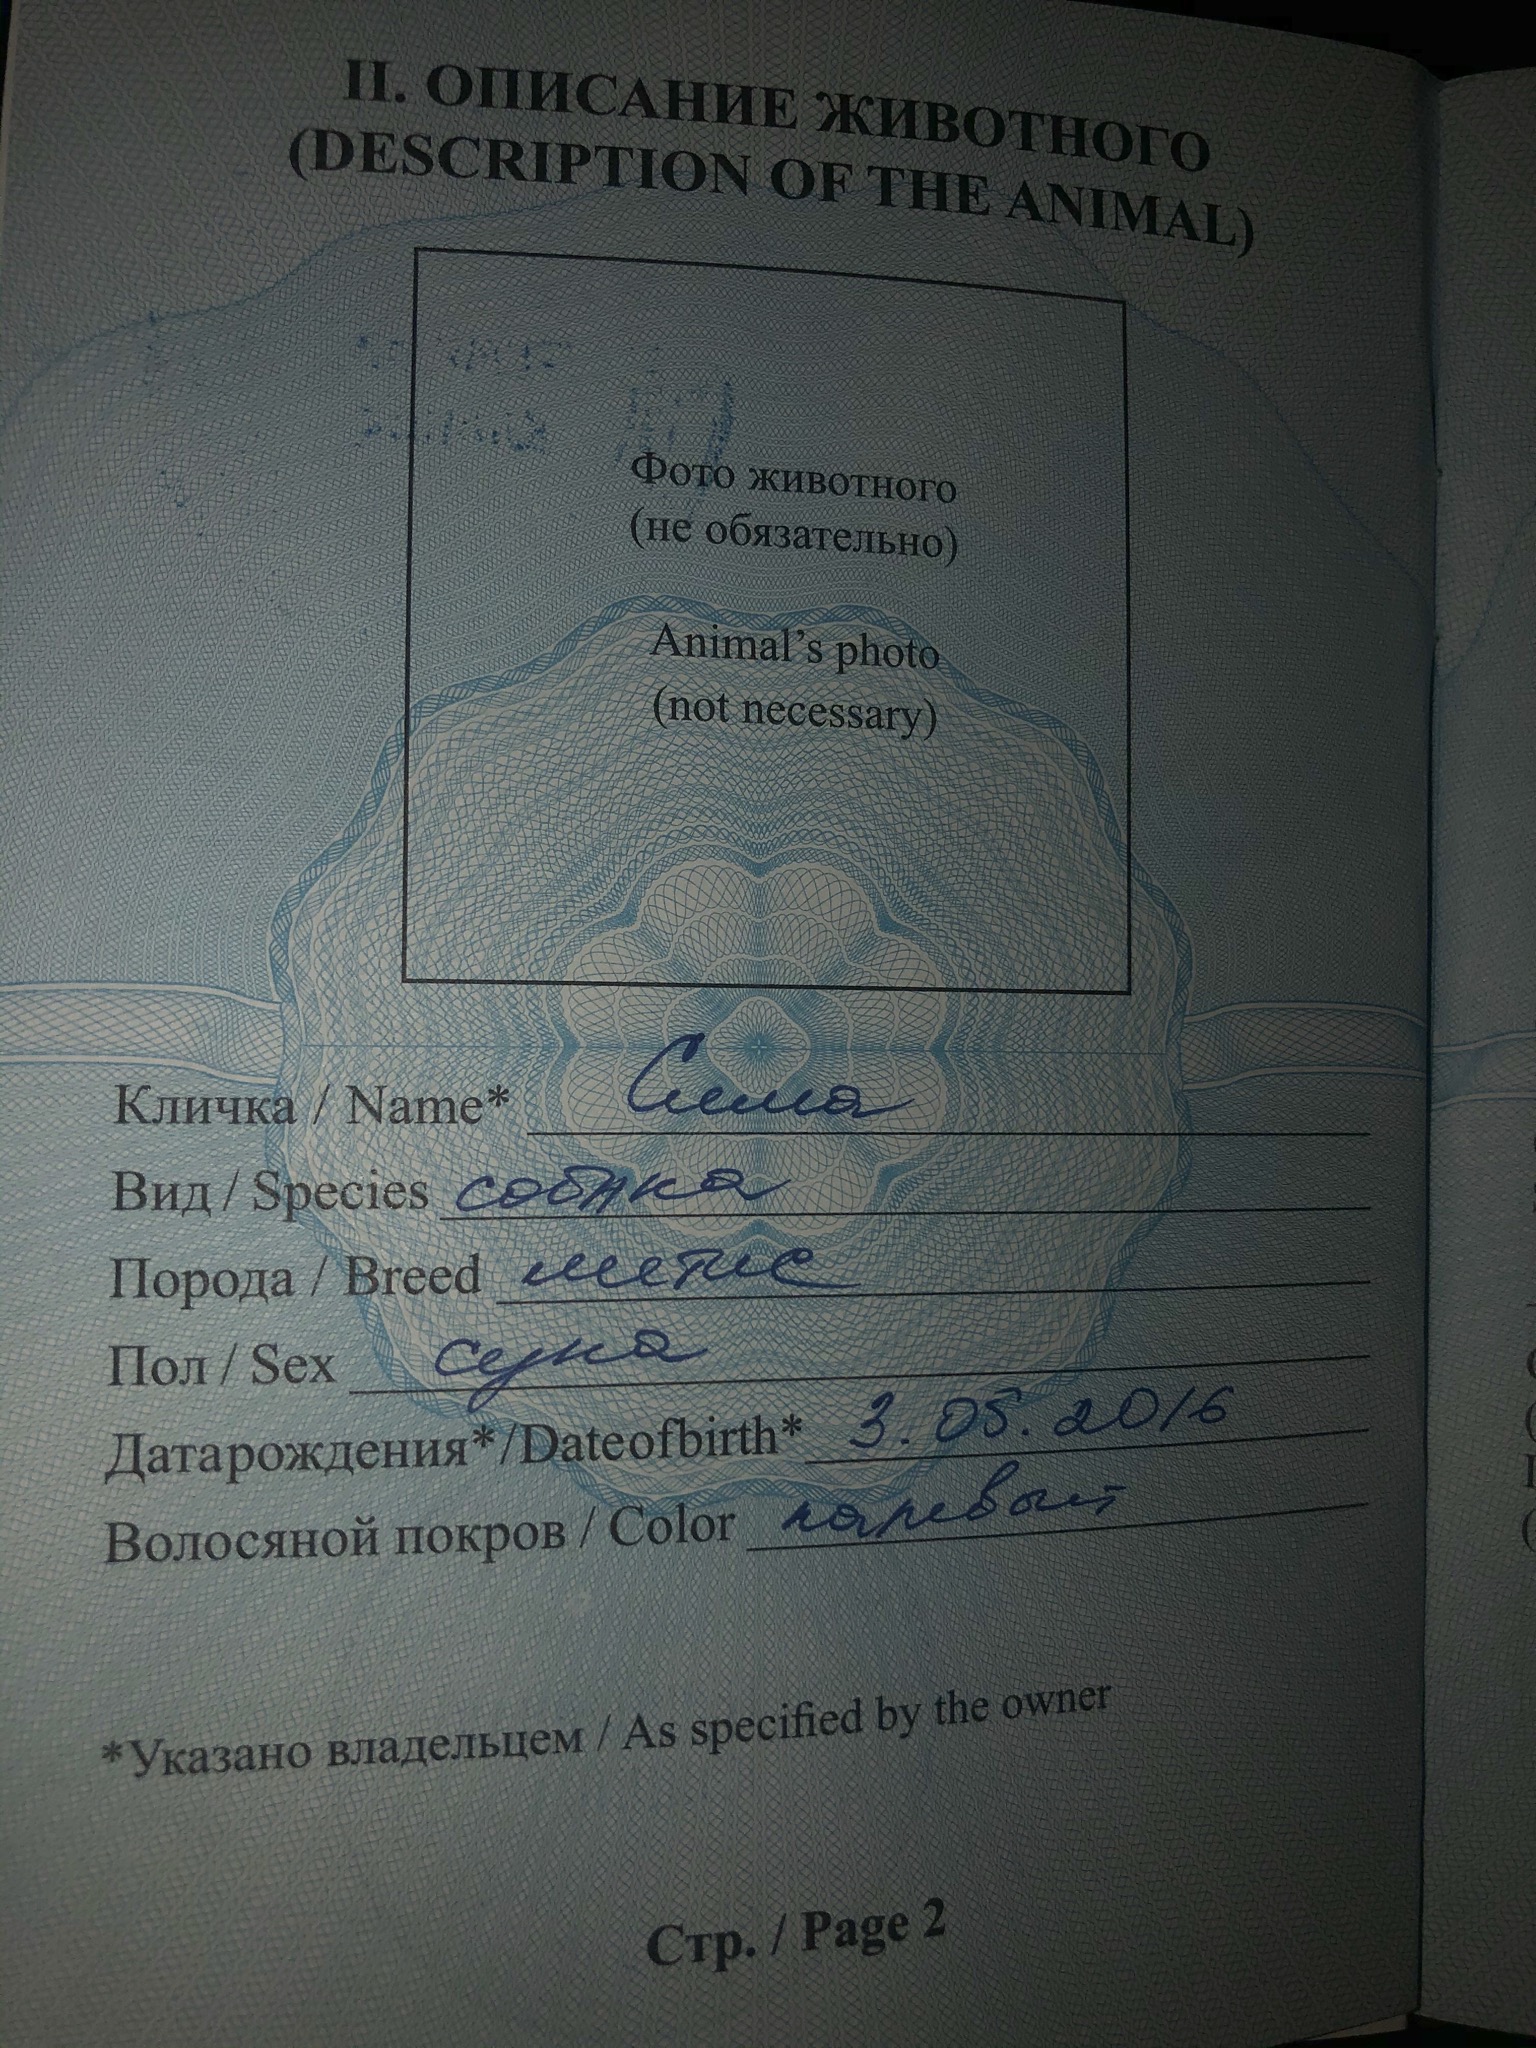 II. ОПИСАНИЕ ЖИВОТНОГО
(DESCRIPTION OF THE ANIMAL)
Фото животного
(не обязательно)
Animal's photo
(not necessary)
Кличка / Name* Сима
Вид / Species собака
Порода / Breed метис
Пол / Sex сука
Датарождения*/Dateofbirth* 3.05.2016
Волосяной покров / Color палевый
*Указано владельцем / As specified by the owner
Стр. / Page 2